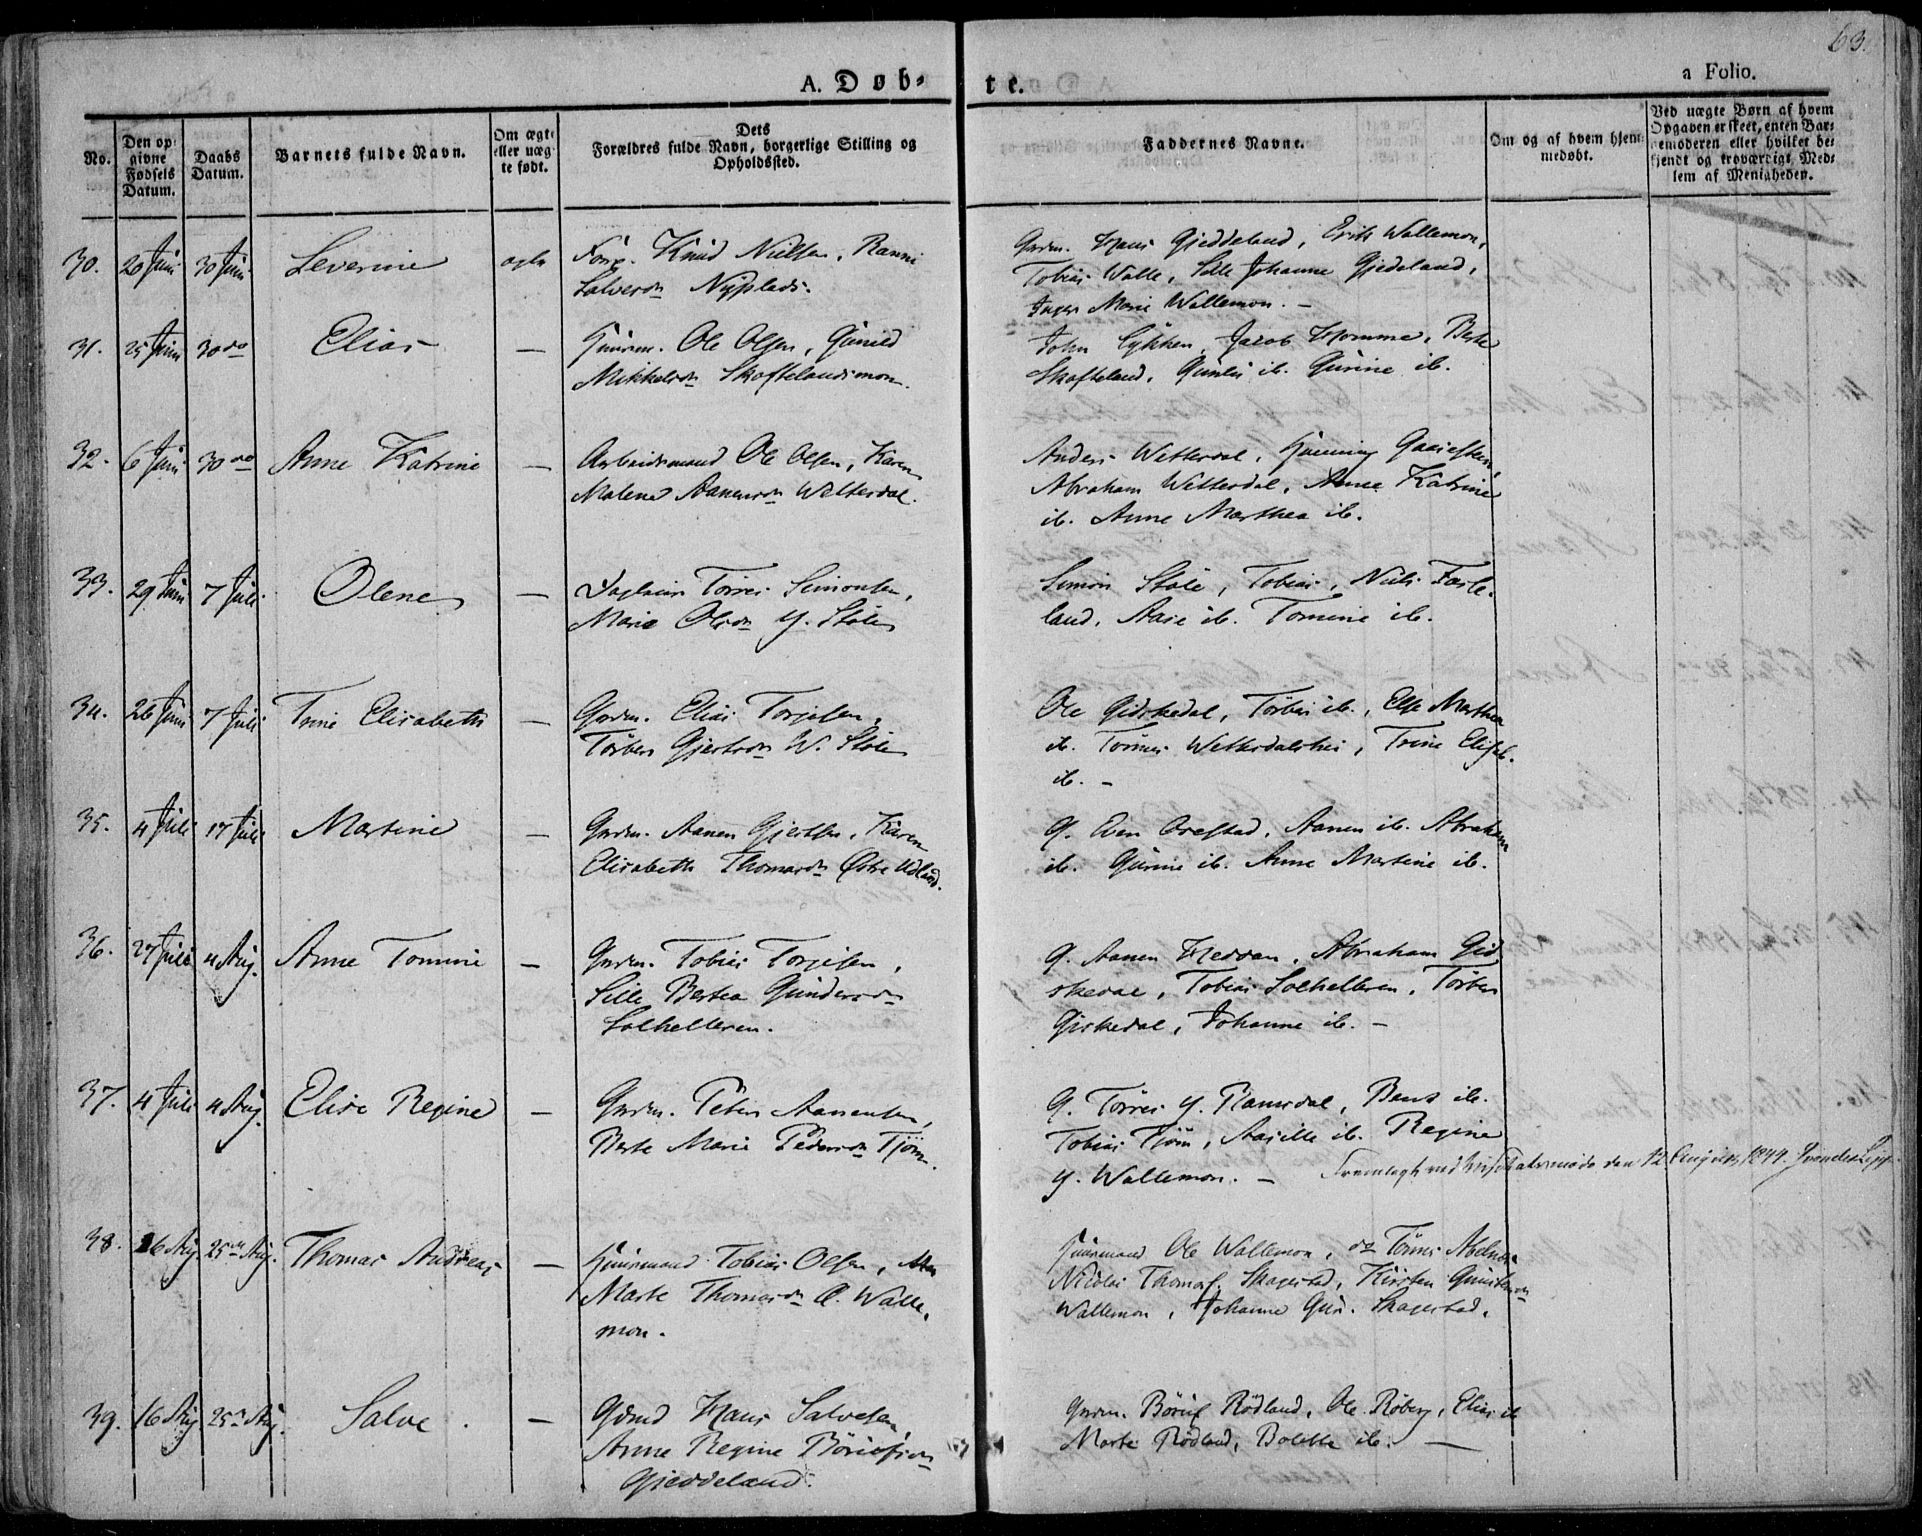 63.
A. Døb-
te.
a Folio.
No.
Den op-
givne
Fødsels
Datum.
Daabs
Datum.
Barnets fulde Navn.
Om ægte
eller uæg-
te født.
Dets
Forældres fulde Navn, borgerlige Stilling og
Opholdssted.
Faddernes Navne.
Om og af hvem hjem-
medøbt.
Ved uægte Børn af hvem
Opgaven er skeet, enten Bar-
nemoderen eller hvilket be-
kjendt og troværdigt Med-
lem af Menigheden.
30. 20 Juni 30 Juni Severine ægte
Knud Nielsen,
Salvesdr Nyplads.
Hans Gjeddeland, Erik Wallemon,
Tobias Walle, Sille Johanne Gjedeland,
Inger Marie Wallemon. -
31. 25 Juni 30 do Elias —
Huusm. Ole Olsen, Gunild
Mikkelsdr Skoftelandsmon.
John Lykken, Jacob Homme, Berte
Skofteland, ib. Gurine ib.
32. 6 Juni 30 do Anne Katrine —
Arbeidsmand Ole Olsen, Karen
Malene Aanensdr Wetterdal.
Anders Wetterdal, Henning
Abraham Wetterdal, Anne Katrine
ib. Anne Marthea ib.
33. 29 Juni 7 Juli Olene —
Tørres Simonsen,
Marie Olsdr Y. Støle
Simon Støle, Tobias, Niels Fasle-
land, Aase ib. Tomine ib.
34. 26 Juni 7 Juli Trine Elisabeth —
Grdm. Elias Torjesen,
Torber Gjertsdr W. Støle
Ole Gidskedal, Torber ib., Else Marthea
ib. Tønnes Wetterdalshei, Trine Elisab.
ib. -
35. 4 Juli 17 Juli Martine —
Grdm. Aanen Gjertsen, Karen
Elisabeth Thomasdr Østre Udland.
G. Even Orestad, Aanen ib. Abraham
ib. Gurine ib. Anne Martine ib.
36. 27 Juli 4 Aug. Anne Tomine —
Grdm. Tobias Torjesen,
Sille Bertea Gundersdr
Solhelleren.
G. Aanen Heddan, Abraham Gid-
skedal, Tobias Solhelleren, Torber
Gidskedal, Johanne ib. -
37. 4 Juli 4 Aug. Elise Regine —
Grdm. Peter Aanensen,
Berte Marie Pedersdr Tjøm.
G. Tørres Y. Ramsdal, Bent ib.
Tobias Tjøm, Aasille ib. Regine
Y. Wallemon. - Fremlagt ved den 12 August 1844.
38. 16 Aug. 25de Aug. Thomas Andreas —
Huusmand Tobias Olsen,
Marte Thomasdr Ø. Walle-
mon.
Huusmand Ole Wallemon, do Tønnes
Nicolai Thomas. Skagestad, Kirsten
Wallemon, Johanne Skagestad.
39. 16 Aug. 25de Aug. Salve. —
Gdmd Hans Salvesen,
Anne Regine Børufsdr
Gjeddeland.
Grdm. Børuf Rødland, Ole Røberg, Elias ib
Marte Rødland, Bolette ib. —